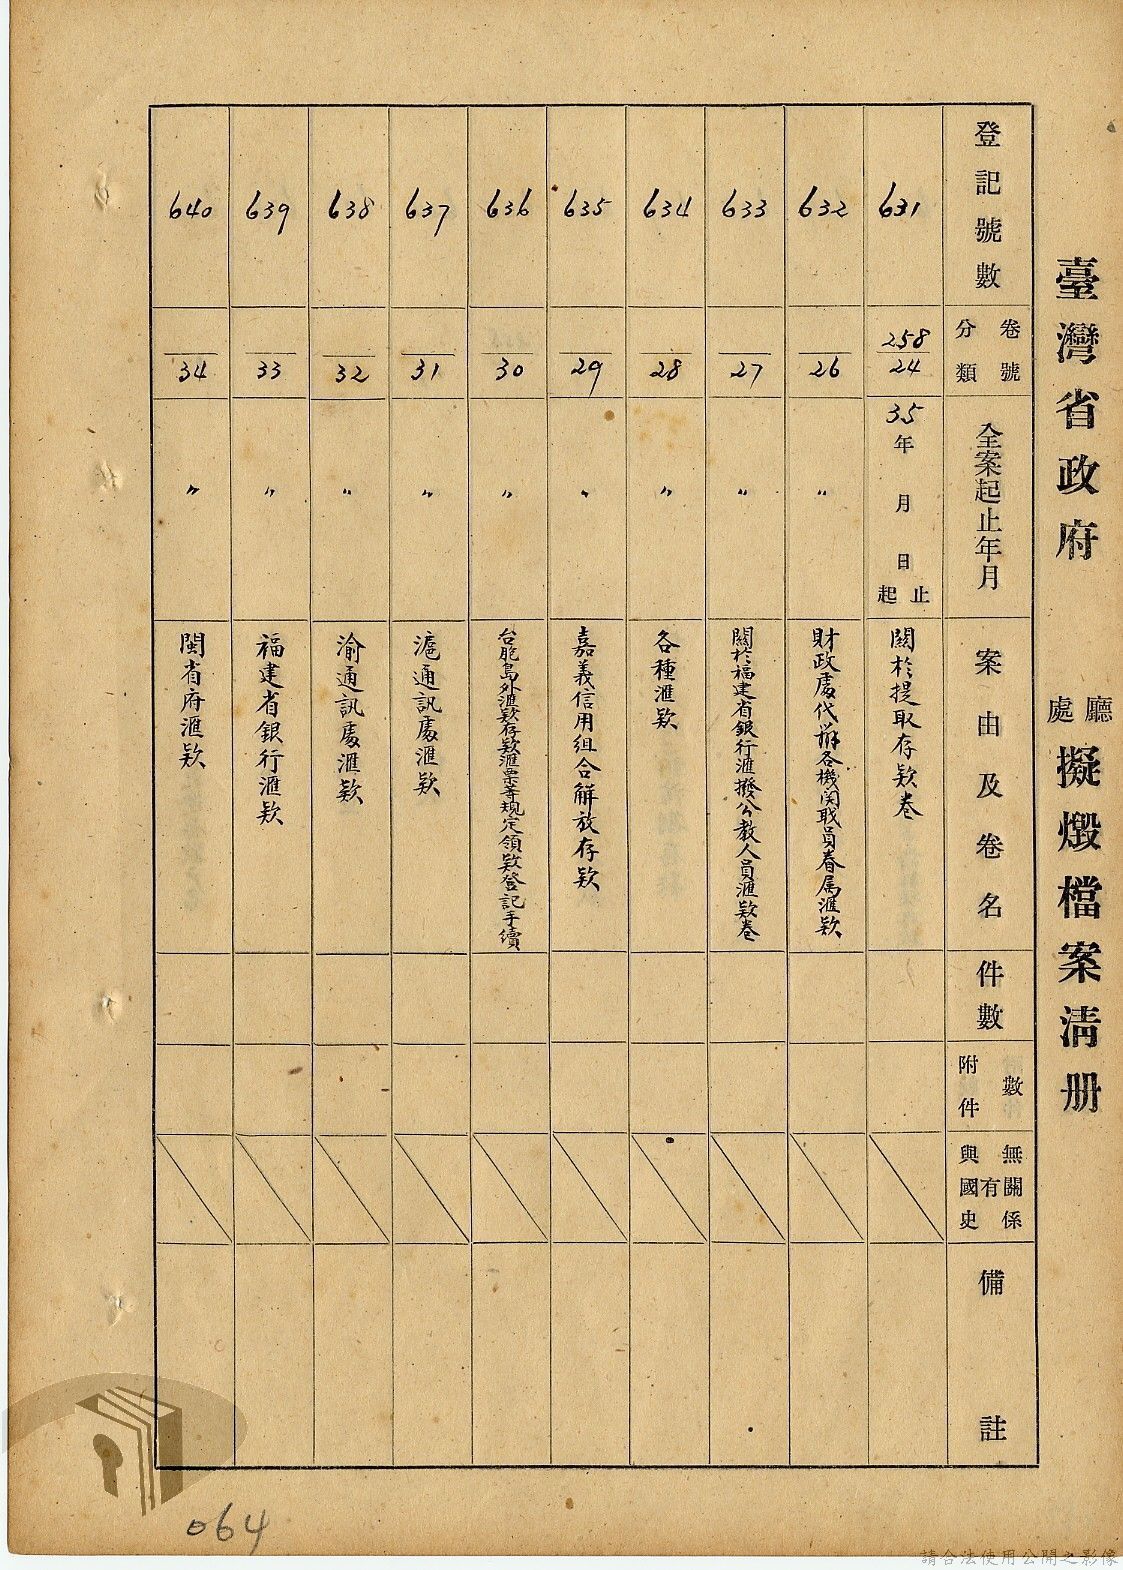 臺灣省政府 廳處 擬燬檔案清册
登記號數
分類 卷號
全案起止年月
案由及卷名
件數
附件 數
與國史 有 無關係
備註
631
258
24
35年 月 日 起止
關於提取存欵卷
632
26
〃
財政處代辦各機関职員眷属滙欵
633
27
〃
關於福建省銀行滙撥公教人員滙欵卷
634
28
〃
各種滙欵
635
29
〃
嘉義信用組合解放存欵
636
30
〃
台胞島外滙欵存欵滙票等規定領欵登記手續
637
31
〃
滬通訊處滙欵
638
32
〃
渝通訊處滙欵
639
33
〃
福建省銀行滙欵
640
34
〃
閩省府滙欵
064
請合法使用公開之影像